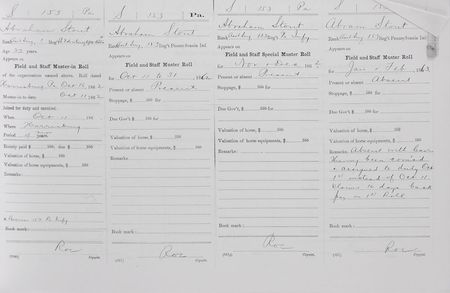 S 153 Pa.
Abraham Stout
Age 32 years.
Appears on
Field and Staff Muster-in Roll
of the organization named above. Roll dated
Harrisburg Pa Oct 186
Muster-in to date Oct 11, 186
Joined for duty and enrolled:
When Oct 11, 186
Where Harrisburg
Period years.
Bounty paid $ 100; due $ 100
Valuation of horse, $ 100
Valuation of horse equipments, $ 100
Remarks:
Book mark:
Roe
Copyist.
S 153 Pa.
Abraham Stout
Reg't Pennsylvania Inf.
Appears on
Field and Staff Muster Roll
for Oct 11 to 31, 1862
Present or absent Present
Stoppage, $ 100 for
Due Gov't, $ 100 for
Valuation of horse, $ 100
Valuation of horse equipments, $ 100
Remarks:
Book mark:
Roe
Copyist.
S 153 Pa.
Abraham Stout
Appears on
Field and Staff Special Muster Roll
for Nov & Dec, 186
Present or absent Present
Stoppage, $ 100 for
Due Gov't, $ 100 for
Valuation of horse, $ 100
Valuation of horse equipments, $ 100
Remarks:
Book mark:
Roe
Copyist.
S 153 Pa.
Abram Stout
Reg't Pennsylvania Inf.
Appears on
Field and Staff Muster Roll
for Jan & Feb, 1863
Present or absent Absent
Stoppage, $ 100 for
Due Gov't, $ 100 for
Valuation of horse, $ 100
Valuation of horse equipments, $ 100
Remarks: Absent with leave
Having been
& assigned to duty Oct
1st instead of Oct 11.
Claims 10 days back
pay on 1st Roll
Book mark:
Roe
Copyist.